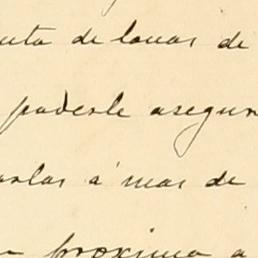 de lonas de
poderle asegur
arlas á mas de
proximo a